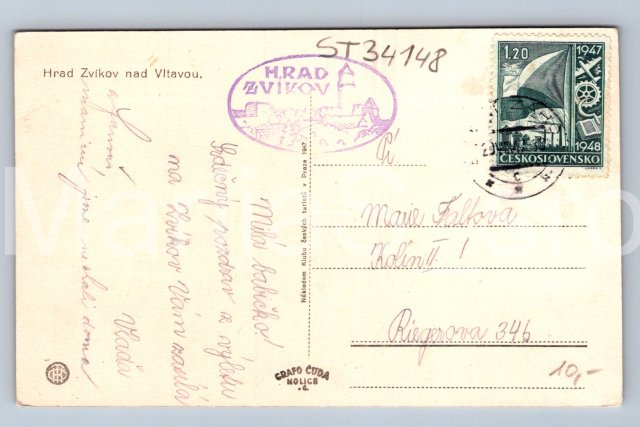 ST34148
Hrad Zvíkov nad Vltavou.
HRAD
ZVÍKOV
1,20
1947
1948
ČESKOSLOVENSKO
Milá babičko!
Srdečný pozdrav z výletu
na Zvíkov Vám zasílá
Vláďa
mamní, jsme nechali doma
Nákladem Klubu českých turistů v Praze 1947
GRAFO ČUDA
HOLICE
Pí
Marie Faltova
Kolín II!
Riegrova 346
10,-